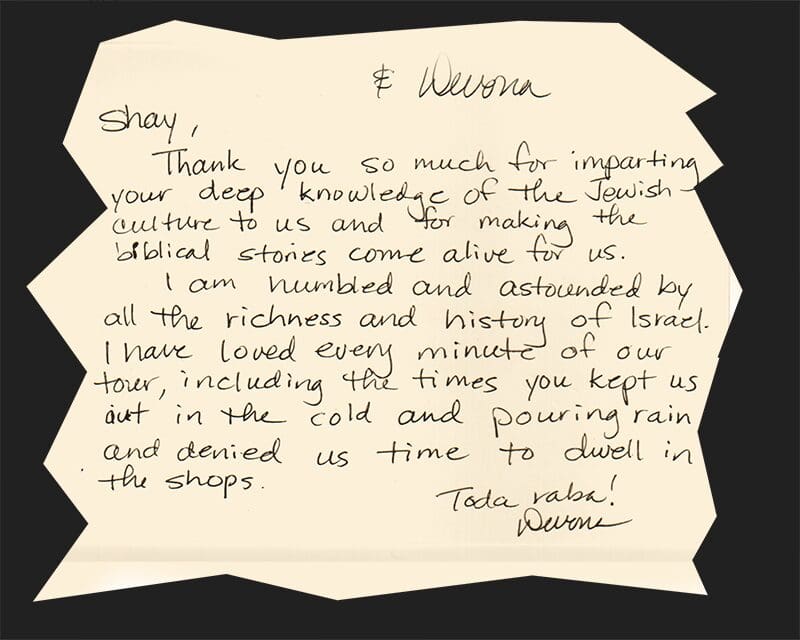 & Devona
Shay,
Thank you so much for imparting
your deep knowledge of the Jewish
culture to us and for making the
biblical stories come alive for us.
I am humbled and astounded by
all the richness and history of Israel.
I have loved every minute of our
tour, including the times you kept us
out in the cold and pouring rain
and denied us time to dwell in
the shops.
Toda raba!
Devona